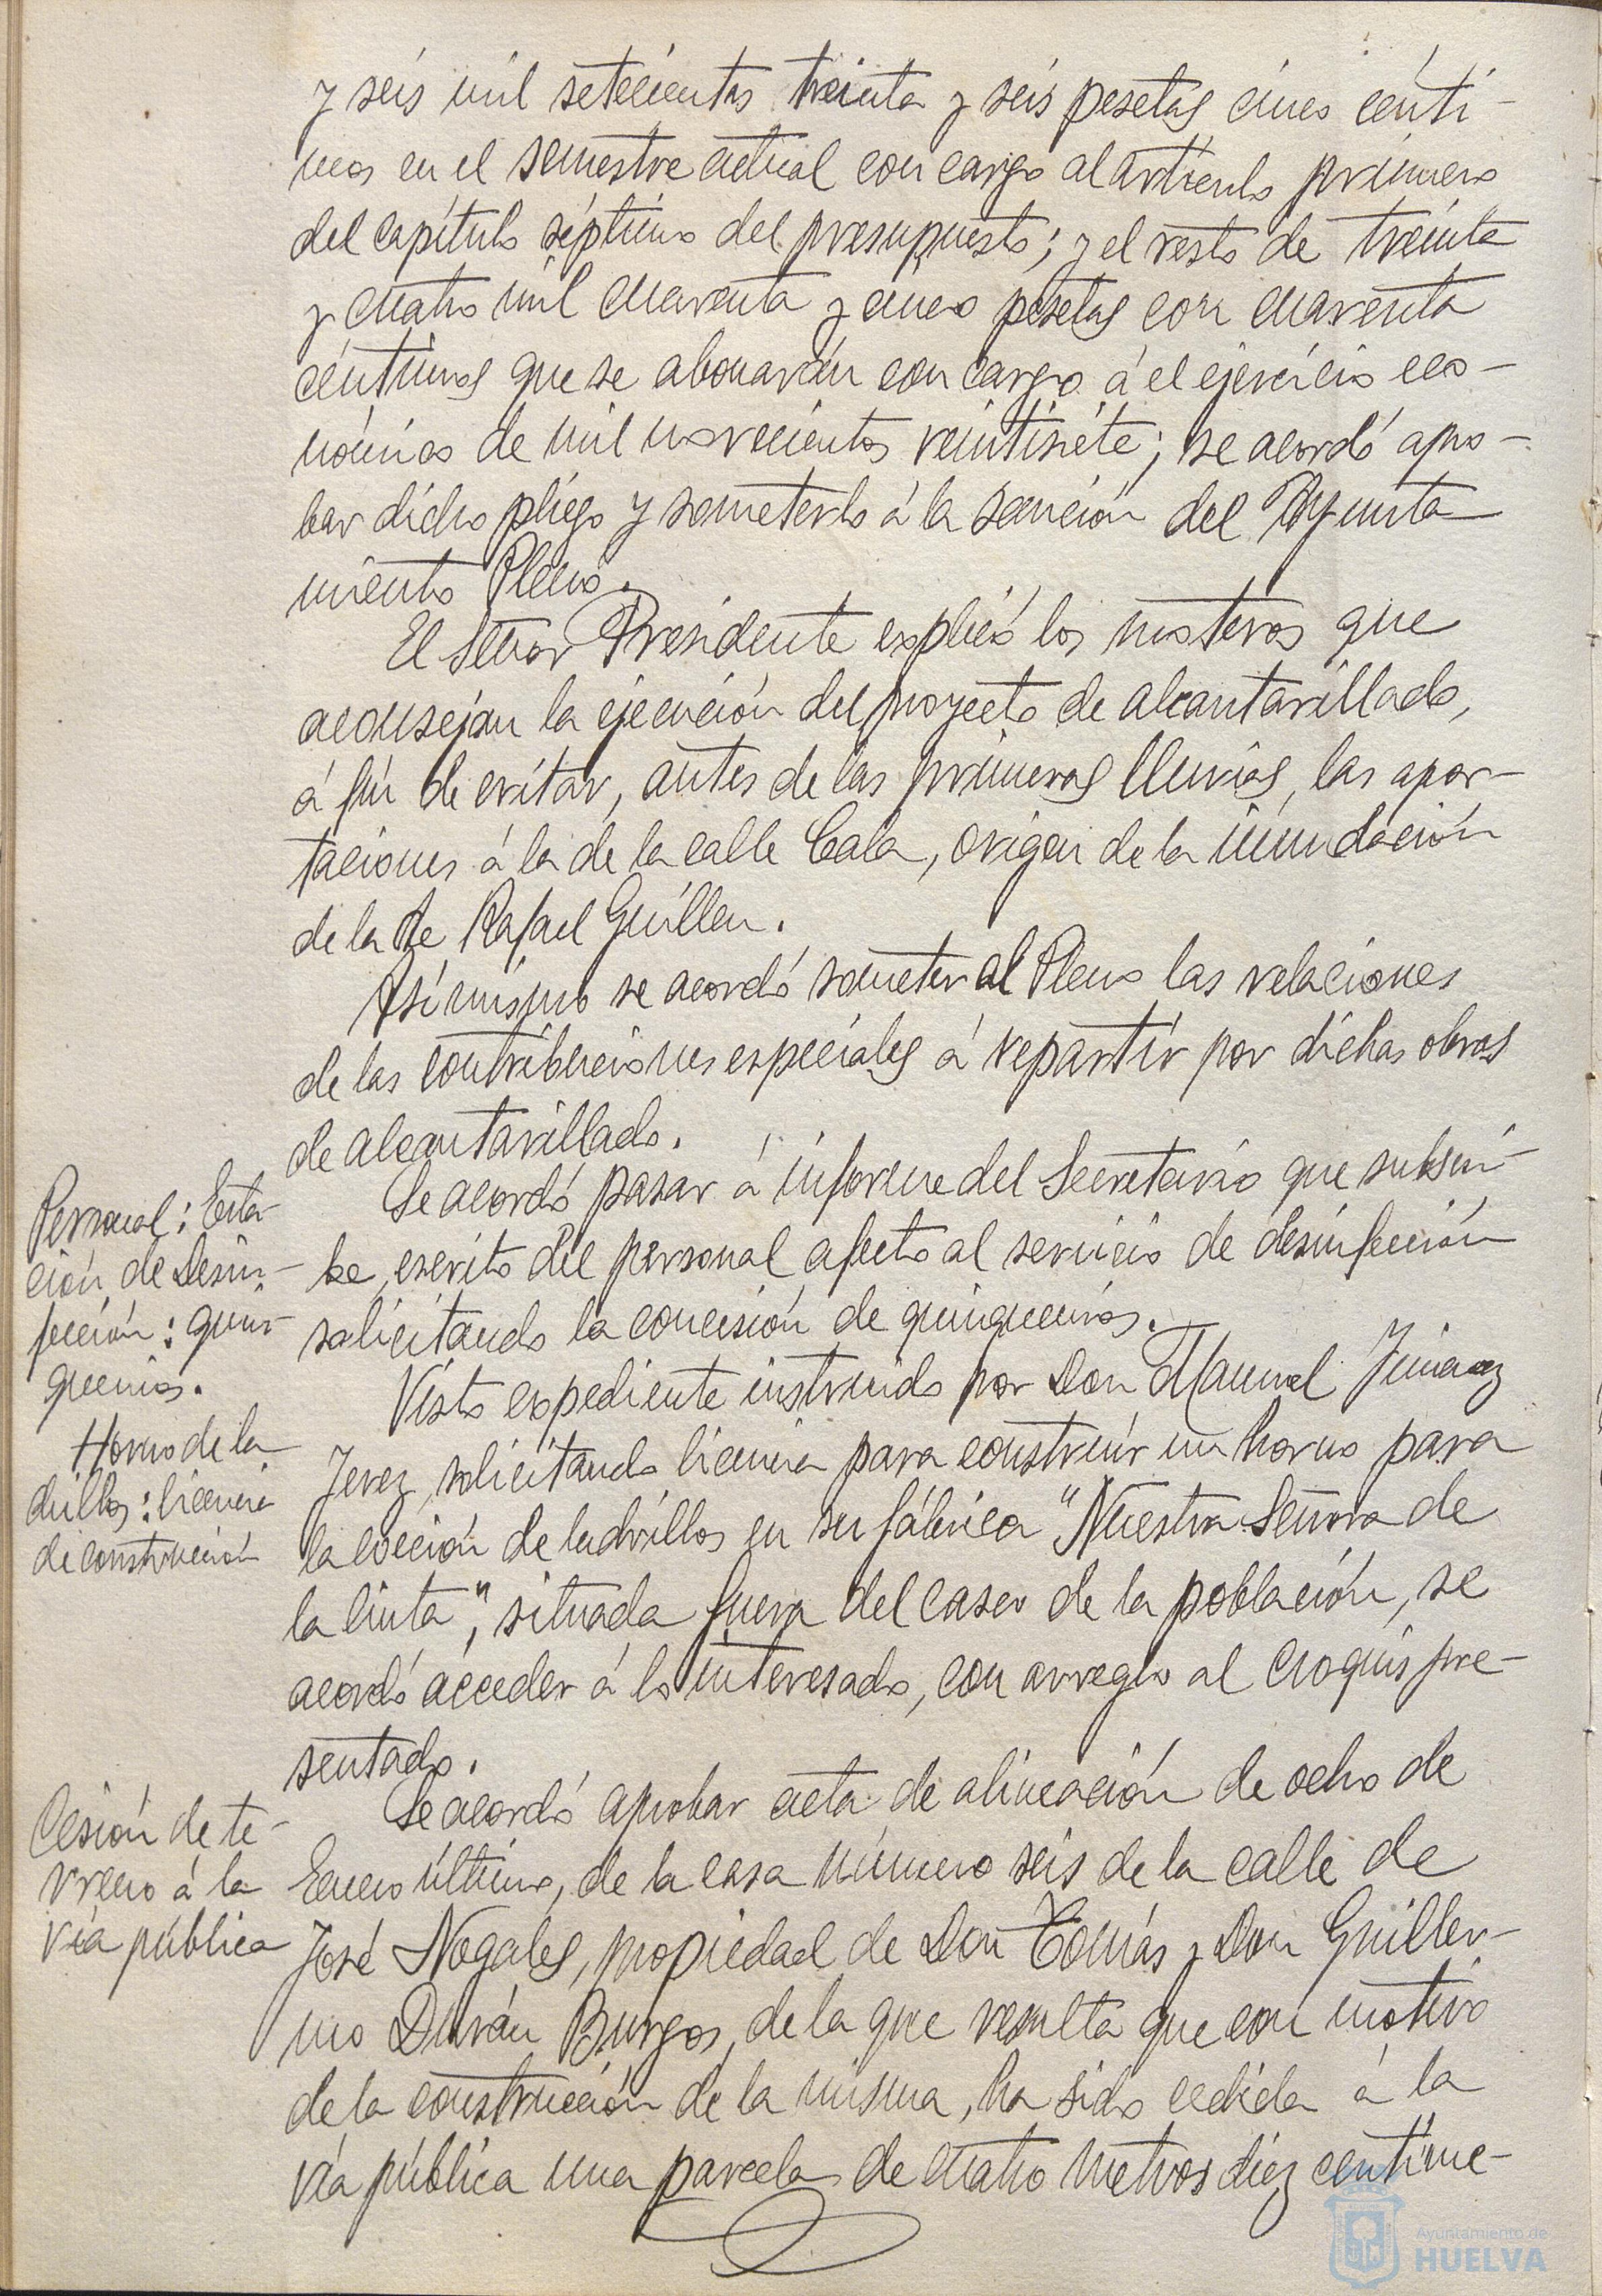 y seis mil setecientas treinta y seis pesetas cinco cénti-
mos en el semestre actual con cargo al artículo primero
del capítulo séptimo del presupuesto; y el resto de treinta
y cuatro mil cuarenta y cinco pesetas con cuarenta
céntimos que se abonarán con cargo á el ejercicio eco-
nómico de mil novecientos veintisiete; se acordó apro-
bar dicho pliego y someterlo á la sanción del Ayunta
miento Pleno.
El Señor Presidente explicó los motivos que
aconsejan la ejecución del proyecto de alcantarillado,
á fin de evitar, antes de las primeras lluvias, las apor-
taciones á la de la calle Cala, origen de la inundación
de la de Rafael Guillen.
Asímismo se acordó someter al Pleno las relaciones
de las contribuciones especiales á repartir por dichas obras
de alcantarillado.
Personal: Esta-
ción de Desin-
fección: quin-
quenios.
Se acordó pasar á informe del Secretario que subscri-
be, escrito del personal afecto al servicio de desinfección
solicitando la concesión de quinquenios.
Horno de la
drillos: licencia
de construcción
Visto expediente instruido por Don Manuel Jimenez
Jerez, solicitando licencia para construir un horno para
la cocción de ladrillos en su fábrica "Nuestra Señora de
la Cinta", situada fuera del casco de la población, se
acordó acceder á lo interesado, con arreglo al croquis pre-
sentado.
Cesión de te-
rreno á la
vía pública
Se acordó aprobar acta de alineación de ocho de
Enero último, de la casa número seis de la calle de
José Nogales, propiedad de Don Tomás y Don Guiller-
mo Durán Burgos, de la que resulta que con motivo
de la construcción de la misma, ha sido cedida á la
vía pública una parcela de cuatro metros diez centíme-
Ayuntamiento de
HUELVA